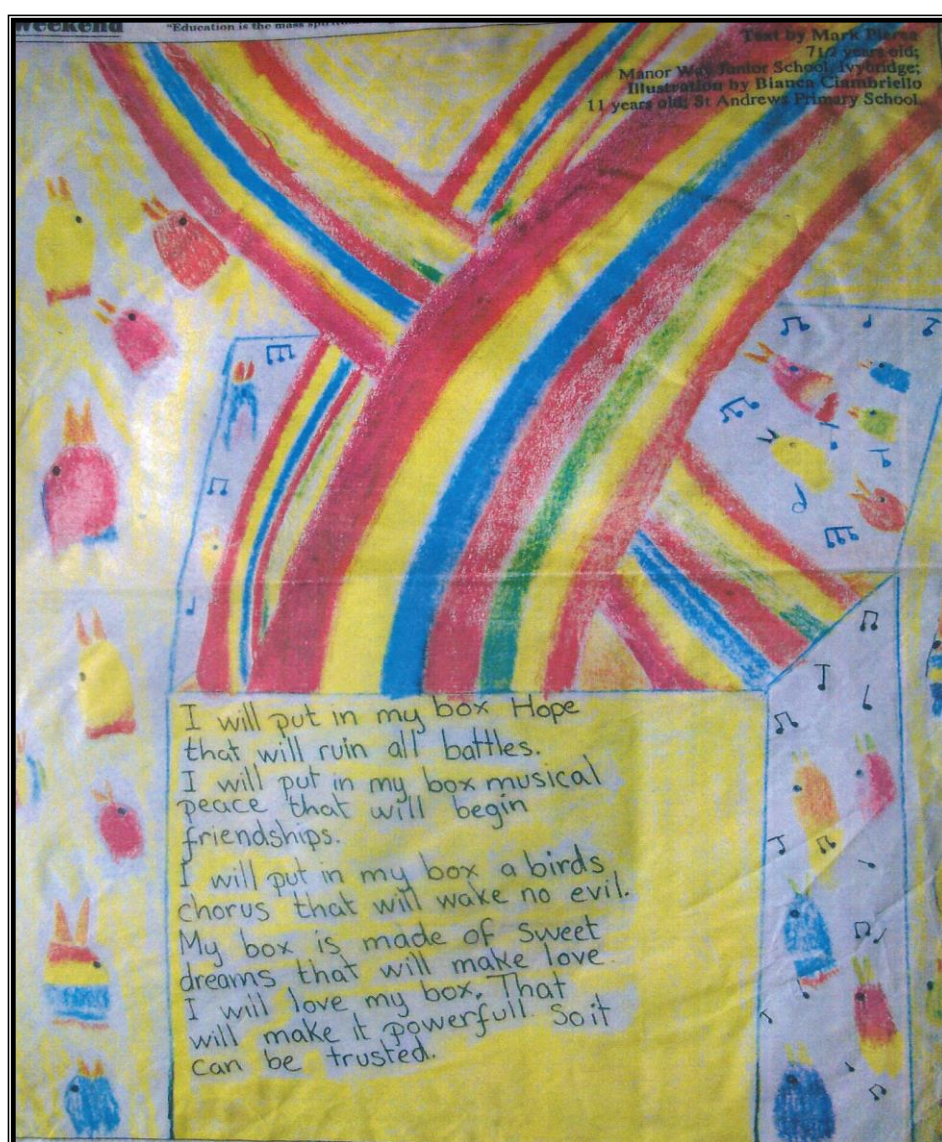 weekend
"Education is the mass
Text by Mark Pierce
7 1/2 years old;
Manor Way Junior School, Ivybridge;
Illustration by Bianca Ciambriello
11 years old; St Andrews Primary School.
I will put in my box Hope
that will ruin all battles.
I will put in my box musical
peace that will begin
friendships.
I will put in my box a birds
chorus that will wake no evil.
My box is made of sweet
dreams that will make love.
I will love my box. That
will make it powerfull. So it
can be trusted.